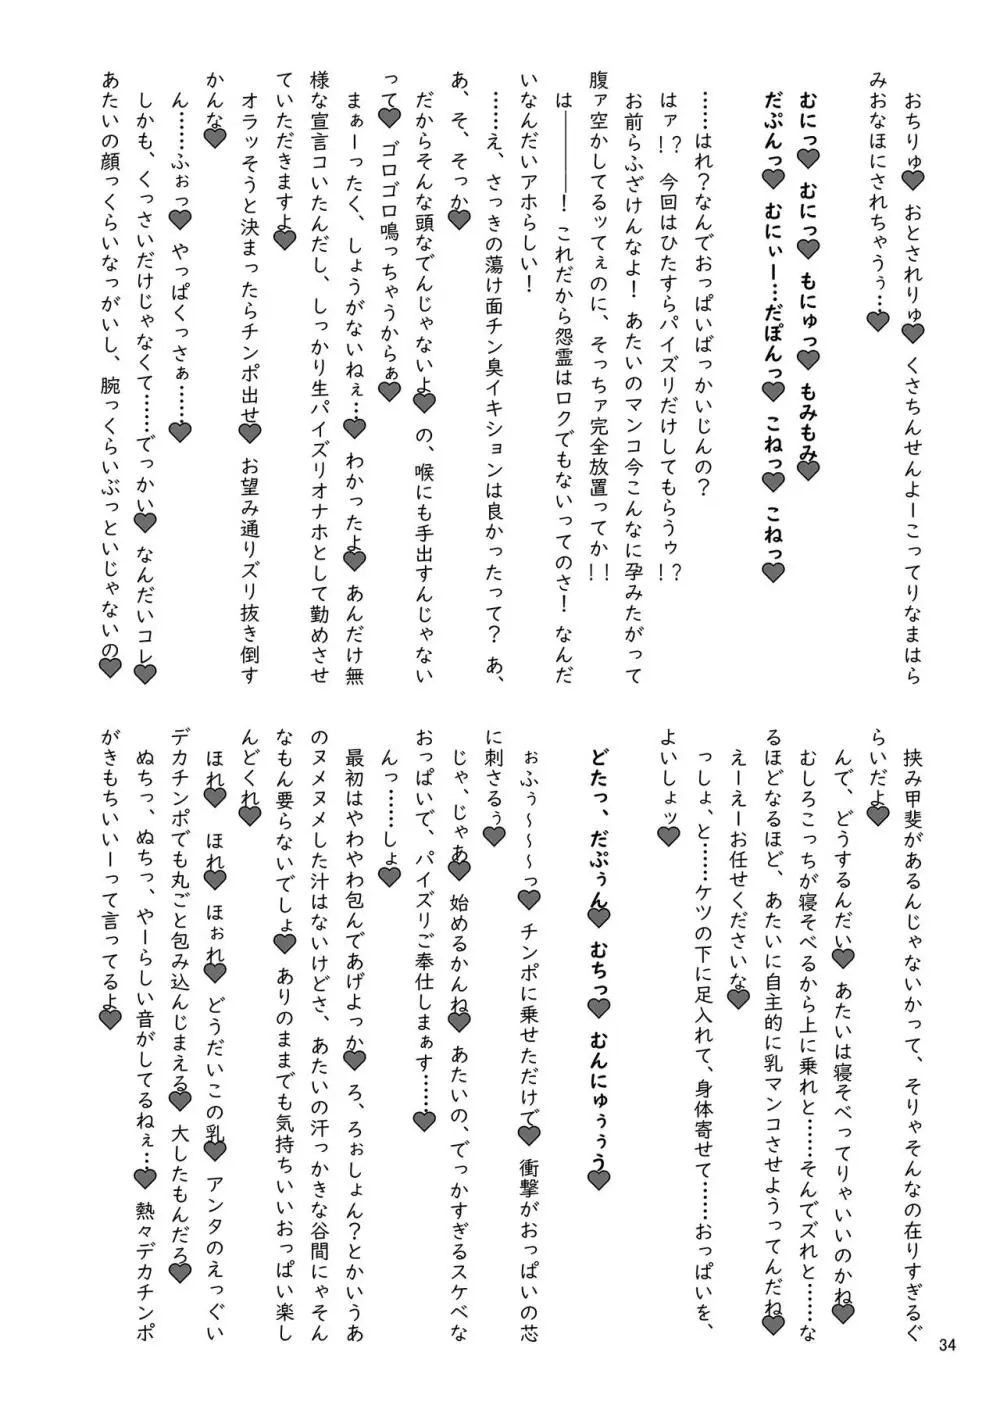 おちりゅ♥ おとされりゅ♥ くさちんせんよーこってりなまはら
みおなほにされちゃうぅ…♥
むにっ♥ むにっ♥ もにゅっ♥ もみもみ♥
だぷんっ♥ むにぃー…だぽんっ♥ こねっ♥ こねっ♥
……はれ？なんでおっぱいばっかいじんの？
はァ！？ 今回はひたすらパイズリだけしてもらうゥ！？
お前らふざけんなよ！ あたいのマンコ今こんなに孕みたがって
腹ァ空かしてるッてぇのに、そっちァ完全放置ってか！！
は――――！ これだから怨霊はロクでもないってのさ！ なんだ
いなんだいアホらしい！
……え、さっきの蕩け面チン臭イキションは良かったって？ あ、
あ、そ、そっか♥
だからそんな頭なでんじゃないよ♥ の、喉にも手出すんじゃない
って♥ ゴロゴロ鳴っちゃうからぁ♥
まぁーったく、しょうがないねぇ…♥ わかったよ♥ あんだけ無
様な宣言コいたんだし、しっかり生パイズリオナホとして勤めさせ
ていただきますよ♥
オラッそうと決まったらチンポ出せ♥ お望み通りズリ抜き倒す
かんな♥
ん……ふぉっ♥ やっぱくっさぁ……♥
しかも、くっさいだけじゃなくて……でっかい♥ なんだいコレ♥
あたいの顔っくらいなっがいし、腕っくらいぶっといじゃないの♥
挟み甲斐があるんじゃないかって、そりゃそんなの在りすぎるぐ
らいだよ♥
んで、どうするんだい♥ あたいは寝そべってりゃいいのかね♥
むしろこっちが寝そべるから上に乗れと……そんでズれと……な
るほどなるほど、あたいに自主的に乳マンコさせようってんだね♥
えーえーお任せくださいな♥
っしょ、と……ケツの下に足入れて、身体寄せて……おっぱいを、
よいしょッ♥
どたっ、だぷぅん♥ むちっ♥ むんにゅぅぅう♥
ぉふぅ～～～っ♥ チンポに乗せただけで♥ 衝撃がおっぱいの芯
に刺さるぅ♥
じゃ、じゃあ♥ 始めるかんね♥ あたいの、でっかすぎるスケベな
おっぱいで、パイズリご奉仕しまぁす……♥
んっ……しょ♥
最初はやわやわ包んであげよっか♥ ろ、ろぉしょん？とかいうあ
のヌメヌメした汁はないけどさ、あたいの汗っかきな谷間にゃそん
なもん要らないでしょ♥ ありのままでも気持ちいいおっぱい楽し
んどくれ♥
ほれ♥ ほれ♥ ほぉれ♥ どうだいこの乳♥ アンタのえっぐい
デカチンポでも丸ごと包み込んじまえる♥ 大したもんだろ♥
ぬちっ、ぬちっ、やーらしい音がしてるねぇ…♥ 熱々デカチンポ
がきもちいいーって言ってるよ♥
34